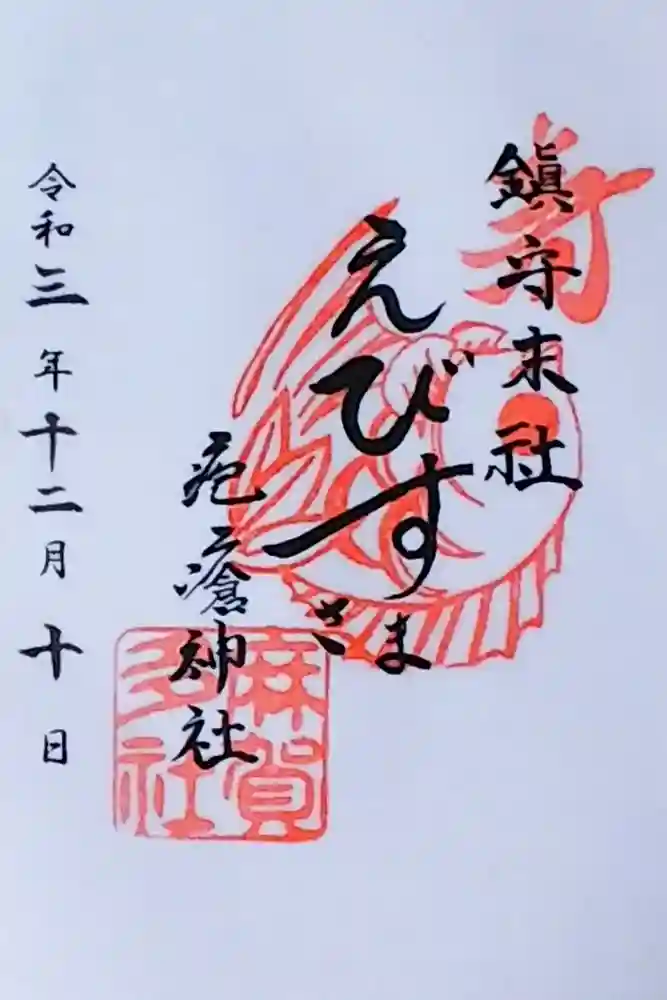 寿
鎭守末社
えびすさま
疱瘡神社
麻賀
多社
令和三年十二月十日